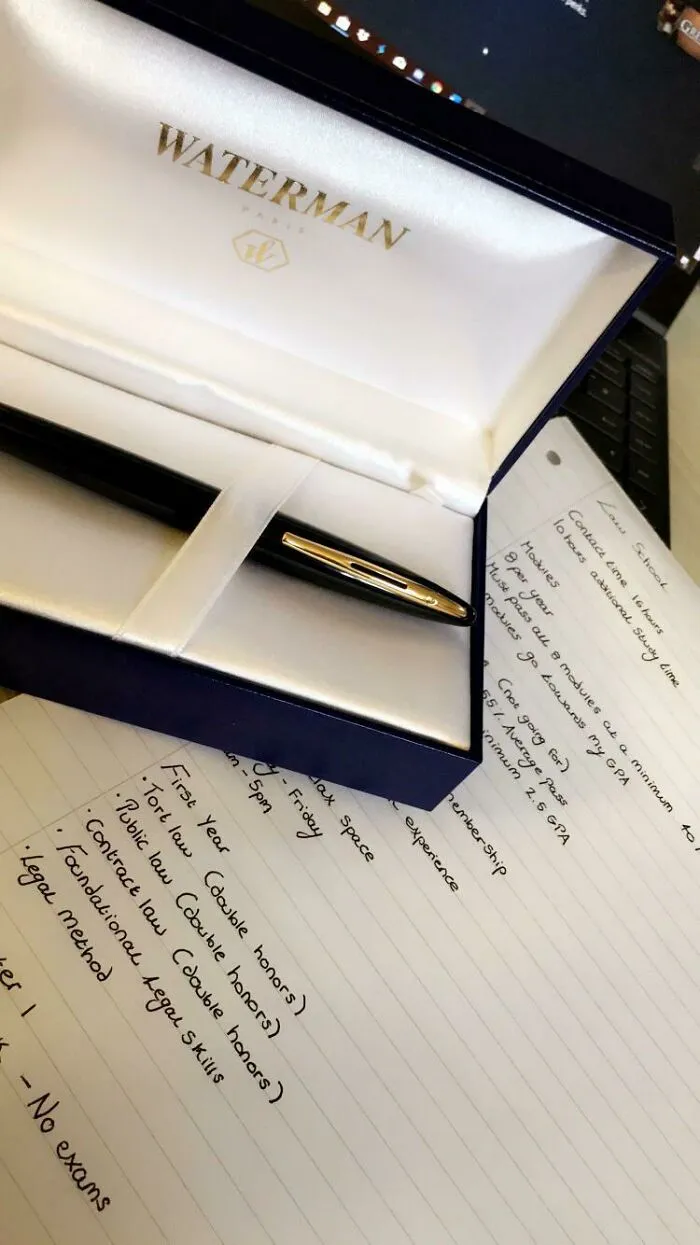 WATERMAN
PARIS
Law School
Contact time 16 hours
10 hours additional study time
Modules
8 per year
Must pass all 8 modules at a minimum
modules go towards my GPA
(not going for)
55% Average pass
minimum 2.5 GPA
membership
experience
space
- Friday
- 5pm
First Year
· Tort law (double honors)
· Public law (double honors)
· Contract law (double honors)
· Foundational Legal Skills
· Legal method
1
- No exams